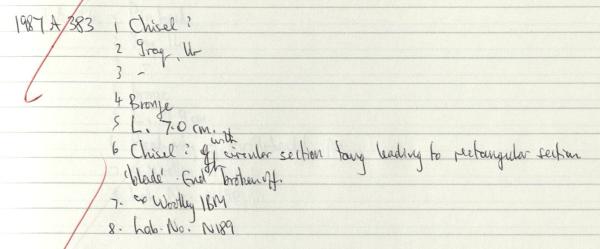 1987 A 383 1 Chisel?
2 Iraq, Ur
3 -
4 Bronze
5 L. 7.0 cm.
6 Chisel? with circular section tang leading to rectangular section
'blade'. End broken off.
7. Woolley IBM
8. Lab. No. N189